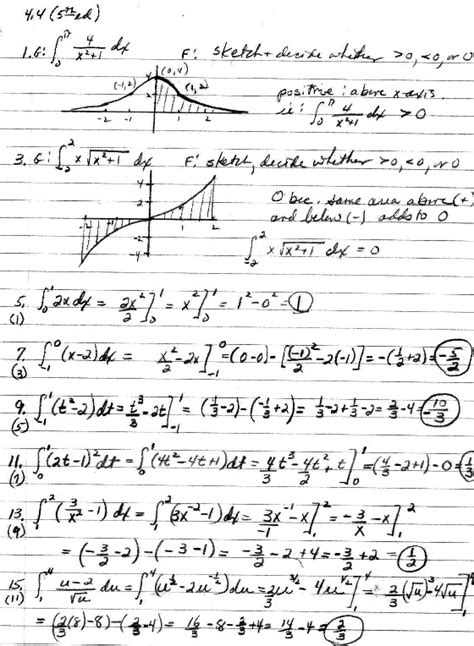 4.4 (5th ed)
1. G: ∫₀^π 4/(x²+1) dx   F: sketch + decide whether >0, <0, or 0
(-1,2) (0,4) (1,2)
4 2 -2 -1 1 2
positive: above x-axis
ie: ∫₀^π 4/(x²+1) dx > 0
3. G: ∫₋₂² x√(x²+1) dx   F: sketch, decide whether >0, <0, or 0
4 2 -2 -4 1 2
0 bec. same area above (+)
and below (-) adds to 0
∫₋₂² x√(x²+1) dx = 0
5. ∫₀¹ 2x dx = 2x²/2]₀¹ = x²]₀¹ = 1² - 0² = 1
(1)
7. ∫₋₁⁰ (x-2)dx = x²/2 - 2x]₋₁⁰ = (0-0) - [(-1)²/2 - 2(-1)] = -(1/2 + 2) = -5/2
(3)
9. ∫₋₁¹ (t²-2)dt = t³/3 - 2t]₋₁¹ = (1/3 - 2) - (-1/3 + 2) = 1/3 - 2 + 1/3 - 2 = 2/3 - 4 = -10/3
(5)
11. ∫₀¹ (2t-1)² dt = ∫₀¹ (4t²-4t+1)dt = 4/3 t³ - 4t²/2 + t]₀¹ = (4/3 - 2 + 1) - 0 = 1/3
(7)
13. ∫₁² (3/x² - 1) dx = ∫₁² (3x⁻² - 1)dx = 3x⁻¹/-1 - x]₁² = -3/x - x]₁²
(9)
= (-3/2 - 2) - (-3 - 1) = -3/2 - 2 + 4 = -3/2 + 2 = 1/2
15. ∫₁⁴ (u-2)/√u du = ∫₁⁴ (u^½ - 2u^-½)du = 2/3 u^3/2 - 4u^½]₁⁴ = 2/3 (√u)³ - 4√u]₁⁴
(11)
= (2/3(8) - 8) - (2/3 - 4) = 16/3 - 8 - 2/3 + 4 = 14/3 - 4 = 2/3